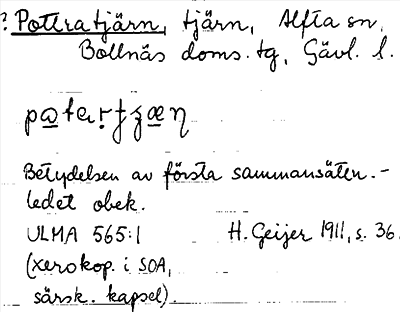 ? Pottratjärn, tjärn, Alfta sn,
Bollnäs doms. tg, Gävl. l.
Betydelsen av första sammansätten.-
ledet obek.
ULMA 565:1 H. Geijer 1911, s. 36.
(xerokop. i SOA,
särsk. kapsel).